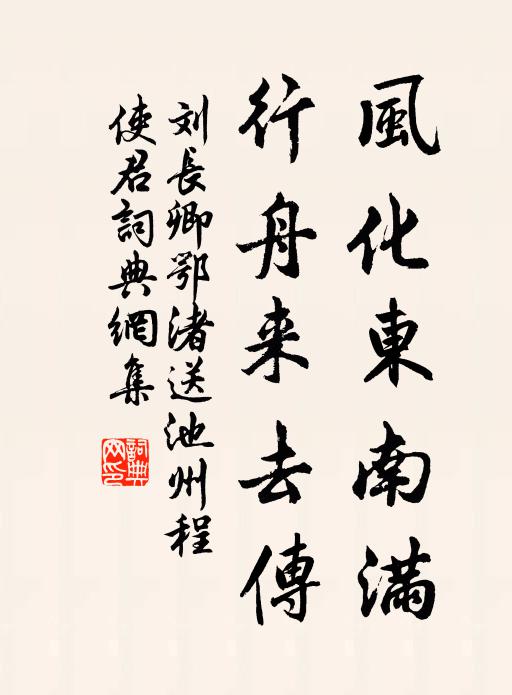 風化東南滿
行舟来去傳
刘長卿鄂渚送池州程
使君詞典網集
詞典
网印